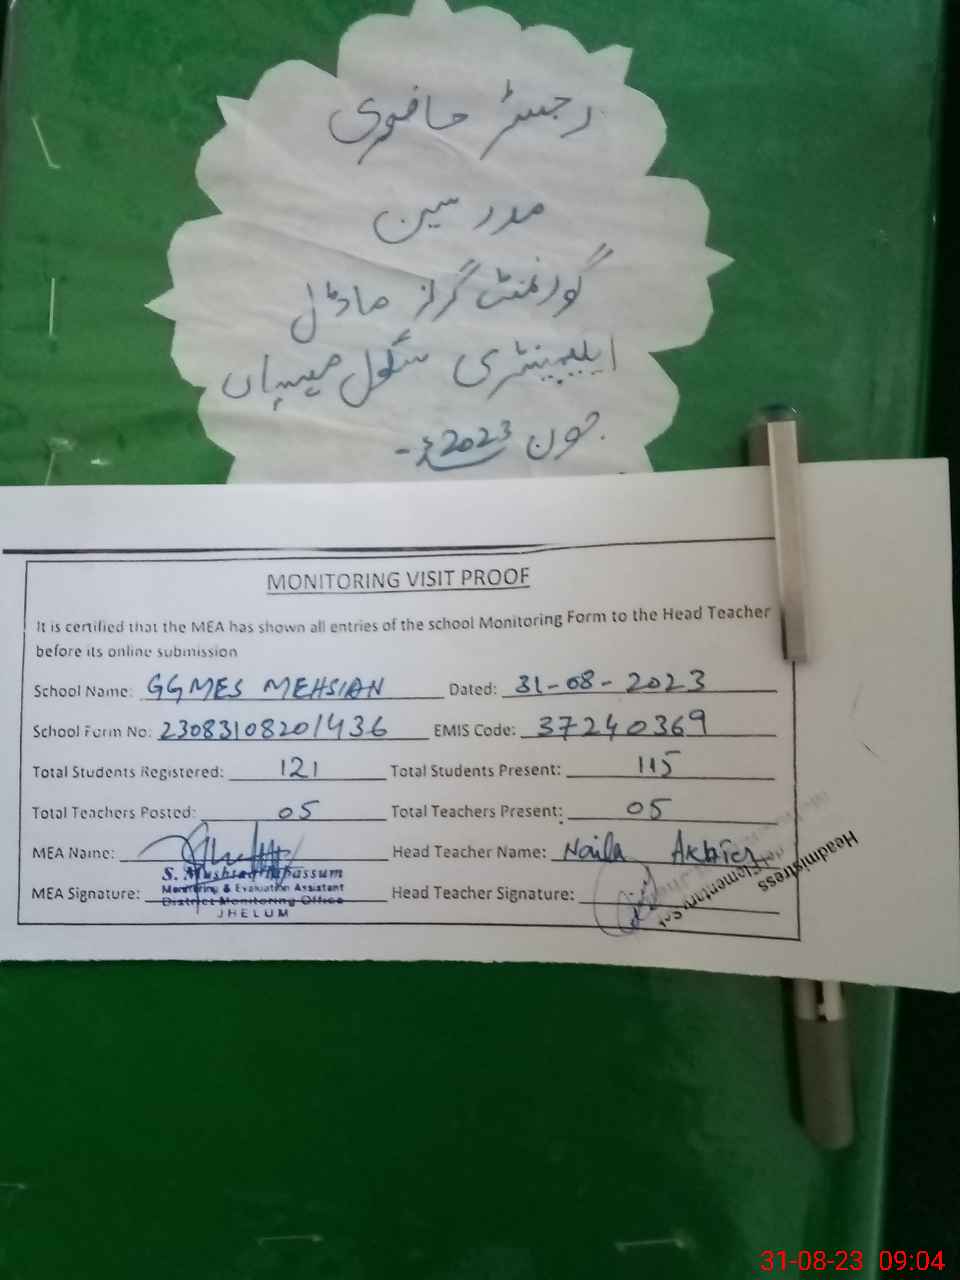 رجسٹر حاضری
مدرسین
گورنمنٹ گرلز ماڈل
ایلیمینٹری سکول میسیاں
جون 2023ء -
MONITORING VISIT PROOF
It is certified that the MEA has shown all entries of the school Monitoring Form to the Head Teacher
before its online submission
School Name: GGMES MEHSIAN Dated: 31-08-2023
School Form No: 23083108201436 EMIS Code: 37240369
Total Students Registered: 121 Total Students Present: 115
Total Teachers Posted: 05 Total Teachers Present: 05
MEA Name: Head Teacher Name: Naila Akhter
S. Mushtaq Tabassum
Monitoring & Evaluation Assistant
MEA Signature: District Monitoring Office Head Teacher Signature:
JHELUM
Headmistress
Elementary
31-08-23 09:04